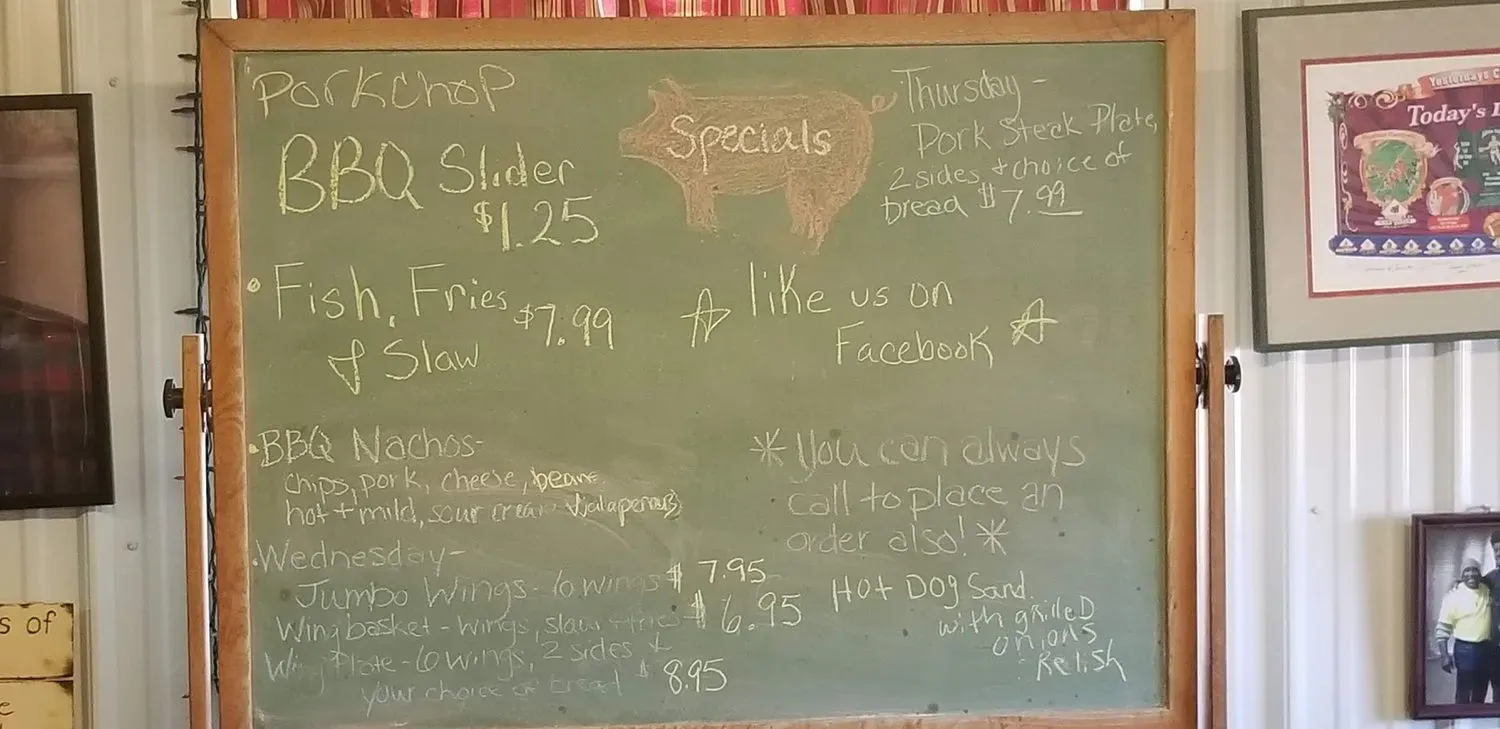 Porkchop
BBQ Slider
$1.25
Specials
Thursday-
Pork Steak Plate,
2 sides + choice of
bread $7.99
• Fish, Fries $7.99
& Slaw
☆ like us on
Facebook ☆
• BBQ Nachos-
chips, pork, cheese, beans
hot + mild, sour cream
* You can always
call to place an
order also! *
• Wednesday-
Jumbo Wings - 6 wings $ 7.95
Wing basket - wings, slaw + fries $ 6.95
Wing Plate - 6 wings, 2 sides &
your choice of bread $ 8.95
Hot Dog Sand.
with grilled
onions
Relish
Yesterdays
Today's
s of